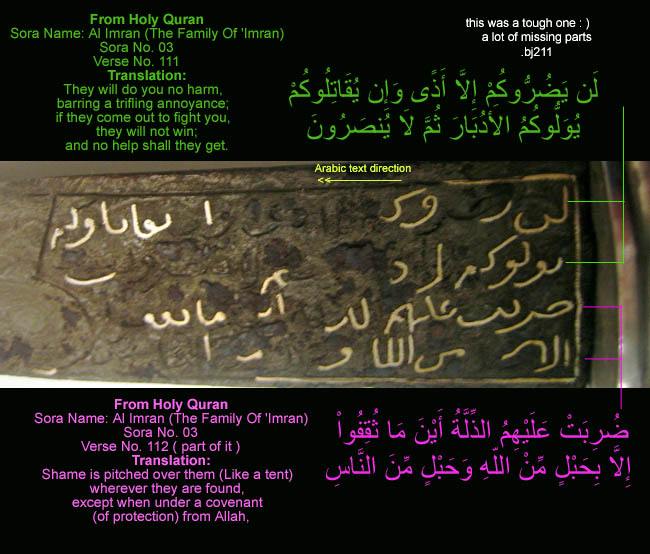 From Holy Quran
Sora Name: Al Imran (The Family Of 'Imran)
Sora No. 03
Verse No. 111
Translation:
They will do you no harm,
barring a trifling annoyance;
if they come out to fight you,
they will not win;
and no help shall they get.
this was a tough one : )
a lot of missing parts
.bj211
لَن يَضُرُّوكُمْ إِلاَّ أَذًى وَإِن يُقَاتِلُوكُمْ
يُوَلُّوكُمُ الأَدُبَارَ ثُمَّ لاَ يُنصَرُونَ
Arabic text direction
<<
لن
يولوكم
ضربت عليهم ما
الا من الله و
From Holy Quran
Sora Name: Al Imran (The Family Of 'Imran)
Sora No. 03
Verse No. 112 ( part of it )
Translation:
Shame is pitched over them (Like a tent)
wherever they are found,
except when under a covenant
(of protection) from Allah,
ضُرِبَتْ عَلَيْهِمُ الذِّلَّةُ أَيْنَ مَا ثُقِفُواْ
إِلاَّ بِحَبْلٍ مِّنْ اللّهِ وَحَبْلٍ مِّنَ النَّاسِ